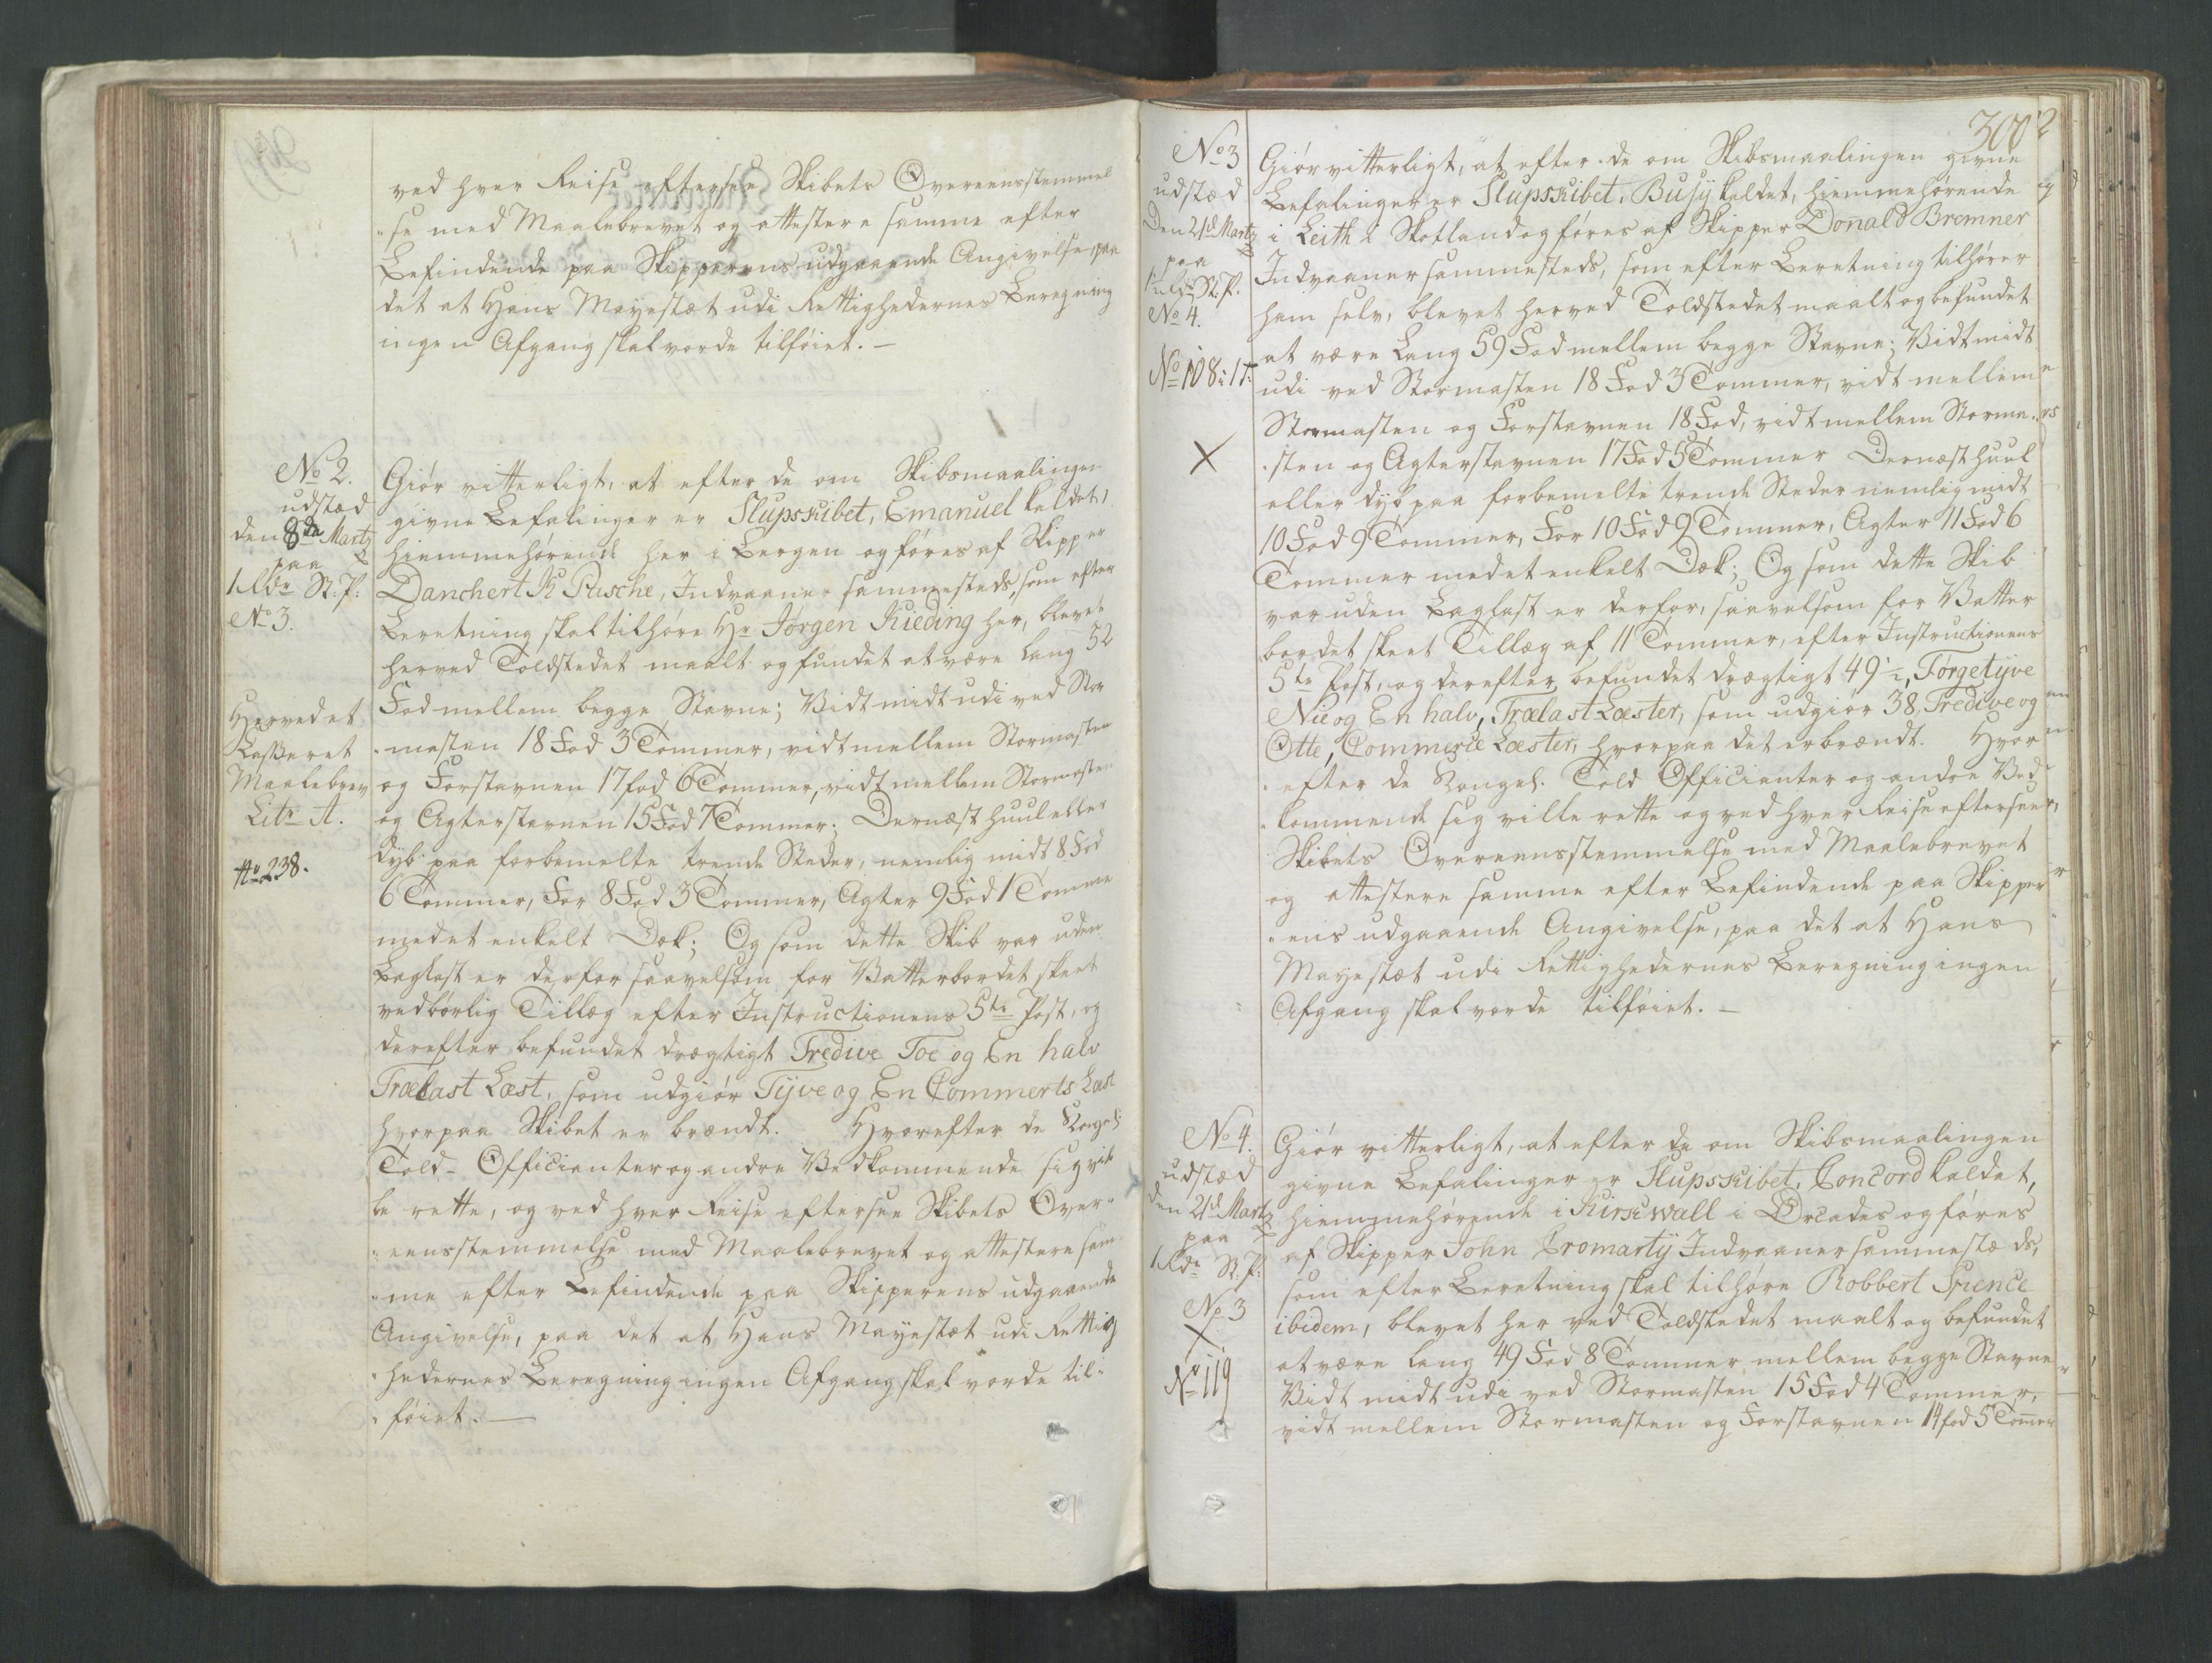 ved hver Reise eftersee Skibets Overeensstemmel
"se med Maalebrevet og attestere samme efter
Befindende paa Skipperens udgaaende Angivelse, paa
det at Hans Mayestæt udi Rettighedernes Beregning
ingen Afgang skal vorde tilføiet. —
No 2.
udstæd
den 8de Martz
paa
1 Rdr St: P:
No 3.
Herved et
Casseret
Maalebrev
Litr A.
No 238.
Giør vitterligt, at efter de om Skibsmaalingen
givne Befalinger er Slupskibet, Emanuel kaldet,
hiemmehørende her i Bergen og føres af Skipper
Danchert K Pusche, Indvaaner sammesteds, som efter
Beretning skal tilhøre Hr Jørgen Kieding her, blevet
herved Toldstedet maalt og fundet at være lang 52
Fod mellem begge Stavne; Vidt midt udi ved Stor
"masten 18 Fod 3 Tommer, vidt mellem Stormasten
og Forstavnen 17 fod 6 Tommer, vidt mellem Stormasten
og Agterstavnen 15 Fod 7 Tommer; Dernæst huul eller
dyb paa forbemelte trende Steder, nemlig midt 8 Fod
6 Tommer, For 8 Fod 3 Tommer, Agter 9 Fod 1 Tomme
med et enkelt Dæk; Og som dette Skib var uden
Baglast er derfor saavelsom for Vatterbordet skeet
vedbørlig Tillæg efter Instructionens 5te Post, og
derefter befundet drægtigt Tredive Toe og En halv
Trælast Læst, som udgiør Tyve og En Commerts Læst
hvorpaa Skibet er brændt. Hvorefter de Kongel:
Told- Officianter og andre Vedkommende sig vil
le rette, og ved hver Reise eftersee Skibets Over"
"eensstemmelse med Maalebrevet og attestere sam
"me efter Befindende paa Skipperens udgaaende
Angivelse, paa det at Hans Mayestæt udi Rettig
"hedernes Beregning ingen Afgang skal vorde til"
"føiet. —
300
No 3
udstæd
Den 21de Martz
paa
1 Rdr St: P.
No 4.
No 108: 17.
X
Giør vitterligt, at efter de om Skibsmaalingen givne
Befalinger er Slupskibet, Busy kaldet, hiemmehørende
i Leith i Skotland og føres af Skipper Donald Bremner
Indvaaner sammesteds, som efter Beretning tilhører
ham selv, blevet herved Toldstedet maalt og befundet
at være Lang 59 Fod mellem begge Stavne; Vidt midt
udi ved Stormasten 18 Fod 3 Tommer, vidt mellem
Stormasten og Forstavnen 18 Fod, vidt mellem Storma"
"sten og Agterstavnen 17 Fod 5 Tommer Dernæst huul
eller dyb paa forbemelte trende Steder nemlig midt
10 Fod 9 Tommer, For 10 Fod 9 Tommer, Agter 11 Fod 6
Tommer med et enkelt Dæk; Og som dette Skib
var uden Baglast er derfor, saavelsom for Vatter
bordet skeet Tillæg af 11 Tommer, efter Instructionens
5te Post, og derefter befundet drægtigt 49 1/2, Førgetyve
Nie og En halv, Trælast Læster, som udgiør 38, Tredive og
Otte, Commerce Læster, hvorpaa det er brændt. Hvor
"efter de Kongel. Told Officianter og andre Ved"
"kommende sig ville rette og ved hver Reise eftersee
Skibets Overeensstemmelse med Maalebrevet
og attestere samme efter Befindende paa Skipper
"ens udgaaende Angivelse, paa det at Hans
Mayestæt udi Rettighedernes Beregning ingen
Afgang skal vorde tilføiet. —
No 4.
udstæd
den 21de Martz
paa
1 Rdr St: P:
No 3
X
No 119
Giør vitterligt, at efter de om Skibsmaalingen
givne Befalinger er Slupskibet, Concord kaldet,
hiemmehørende i Kirscwall i Orcades og føres
af Skipper John Cromarty Indvaaner sammestæds,
som efter Beretning skal tilhøre Robbert Spence
ibidem, blevet her ved Toldstedet maalt og befundet
at være lang 49 Fod 8 Tommer mellem begge Stavne
Vidt midt udi ved Stormasten 15 Fod 4 Tommer,
vidt mellem Stormasten og Forstavnen 14 fod 5 Tommer